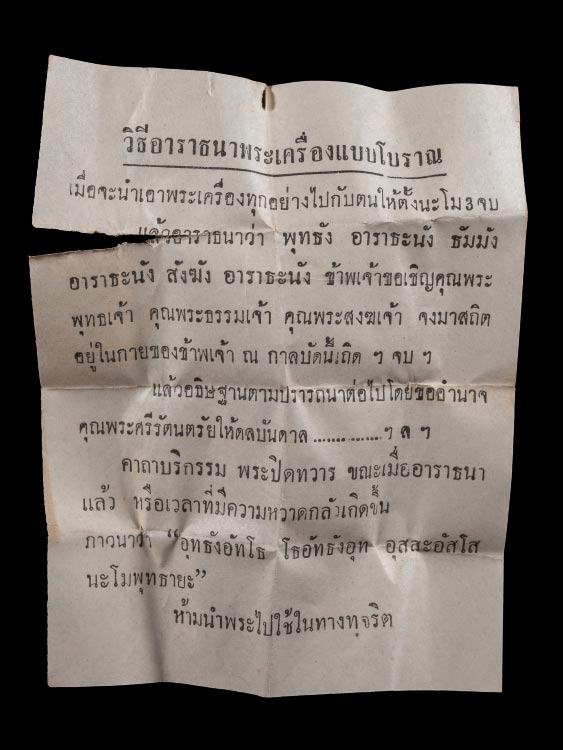 วิธีอาราธนาพระเครื่องแบบโบราณ
เมื่อจะนำเอาพระเครื่องทุกอย่างไปกับตนให้ตั้งนะโม 3 จบ
แล้วอาราธนาว่า พุทธัง อาราธะนัง ธัมมัง
อาราธะนัง สังฆัง อาราธะนัง ข้าพเจ้าขอเชิญคุณพระ
พุทธเจ้า คุณพระธรรมเจ้า คุณพระสงฆเจ้า จงมาสถิต
อยู่ในกายของข้าพเจ้า ณ กาลบัดนี้เถิด ฯ จบ ฯ
แล้วอธิษฐานตามปรารถนาต่อไปโดยขออำนาจ
คุณพระศรีรัตนตรัยให้ดลบันดาล ................ฯ ล ฯ
คาถาบริกรรม พระปิดทวาร ขณะเมื่ออาราธนา
แล้ว หรือเวลาที่มีความหวาดกลัวเกิดขึ้น
ภาวนาว่า “อุทธังอัทโธ โธอัทธังอุท อุสสะอัสโส
นะโมพุทธายะ”
ห้ามนำพระไปใช้ในทางทุจริต